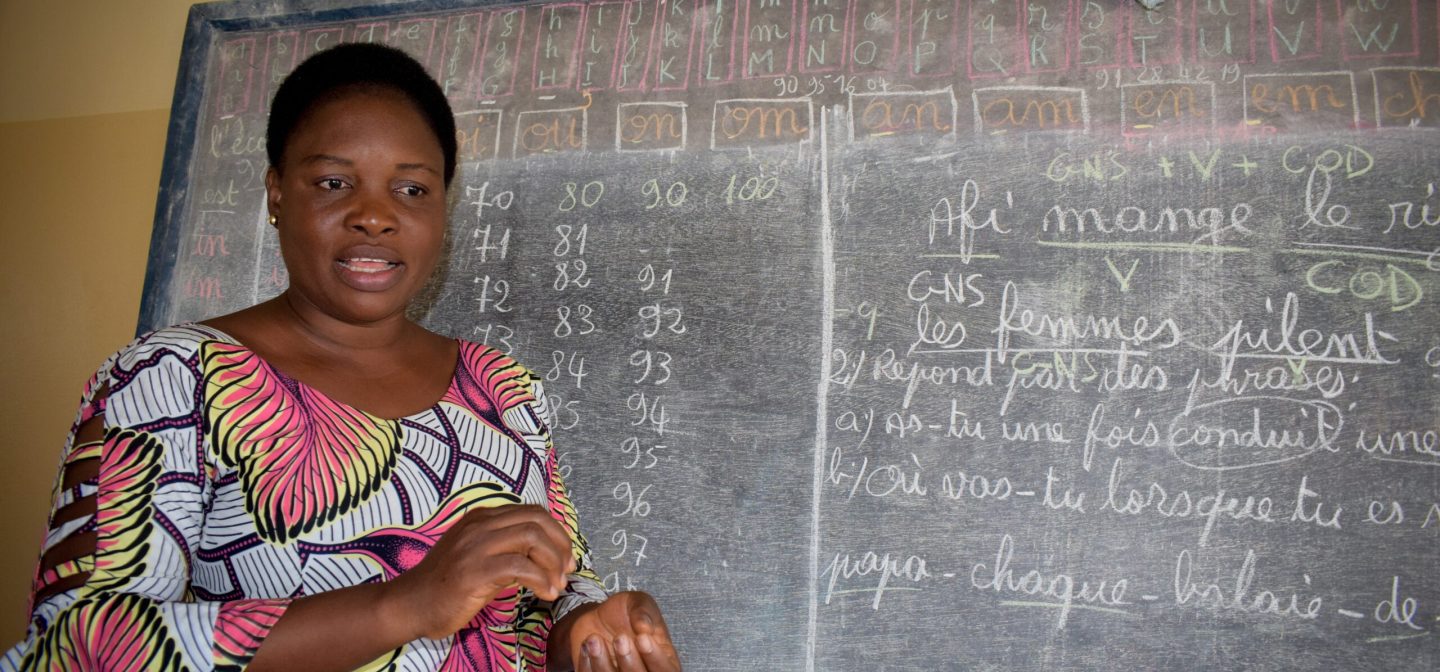 a b c d e f g h i j k l m n o p q r s t u v w
F G H I J K L M N O P Q R S T U V W
90 95 16 91 28 42 19
oi ou on om an am en em
est
in
im
70 80 90 100
71 81
72 82 91
73 83 92
84 93
85 94
95
96
97
GNS + V + COD
Afi mange le
GNS V COD
les femmes pilent
GNS V
2) Répond par des phrases.
a) As-tu une fois conduit une
b) Où vas-tu lorsque tu es
papa - chaque - balaie - de